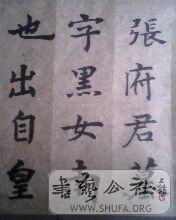 張府君墓
字黑女
也出自皇
書藝公社
WWW.SHUFA.ORG